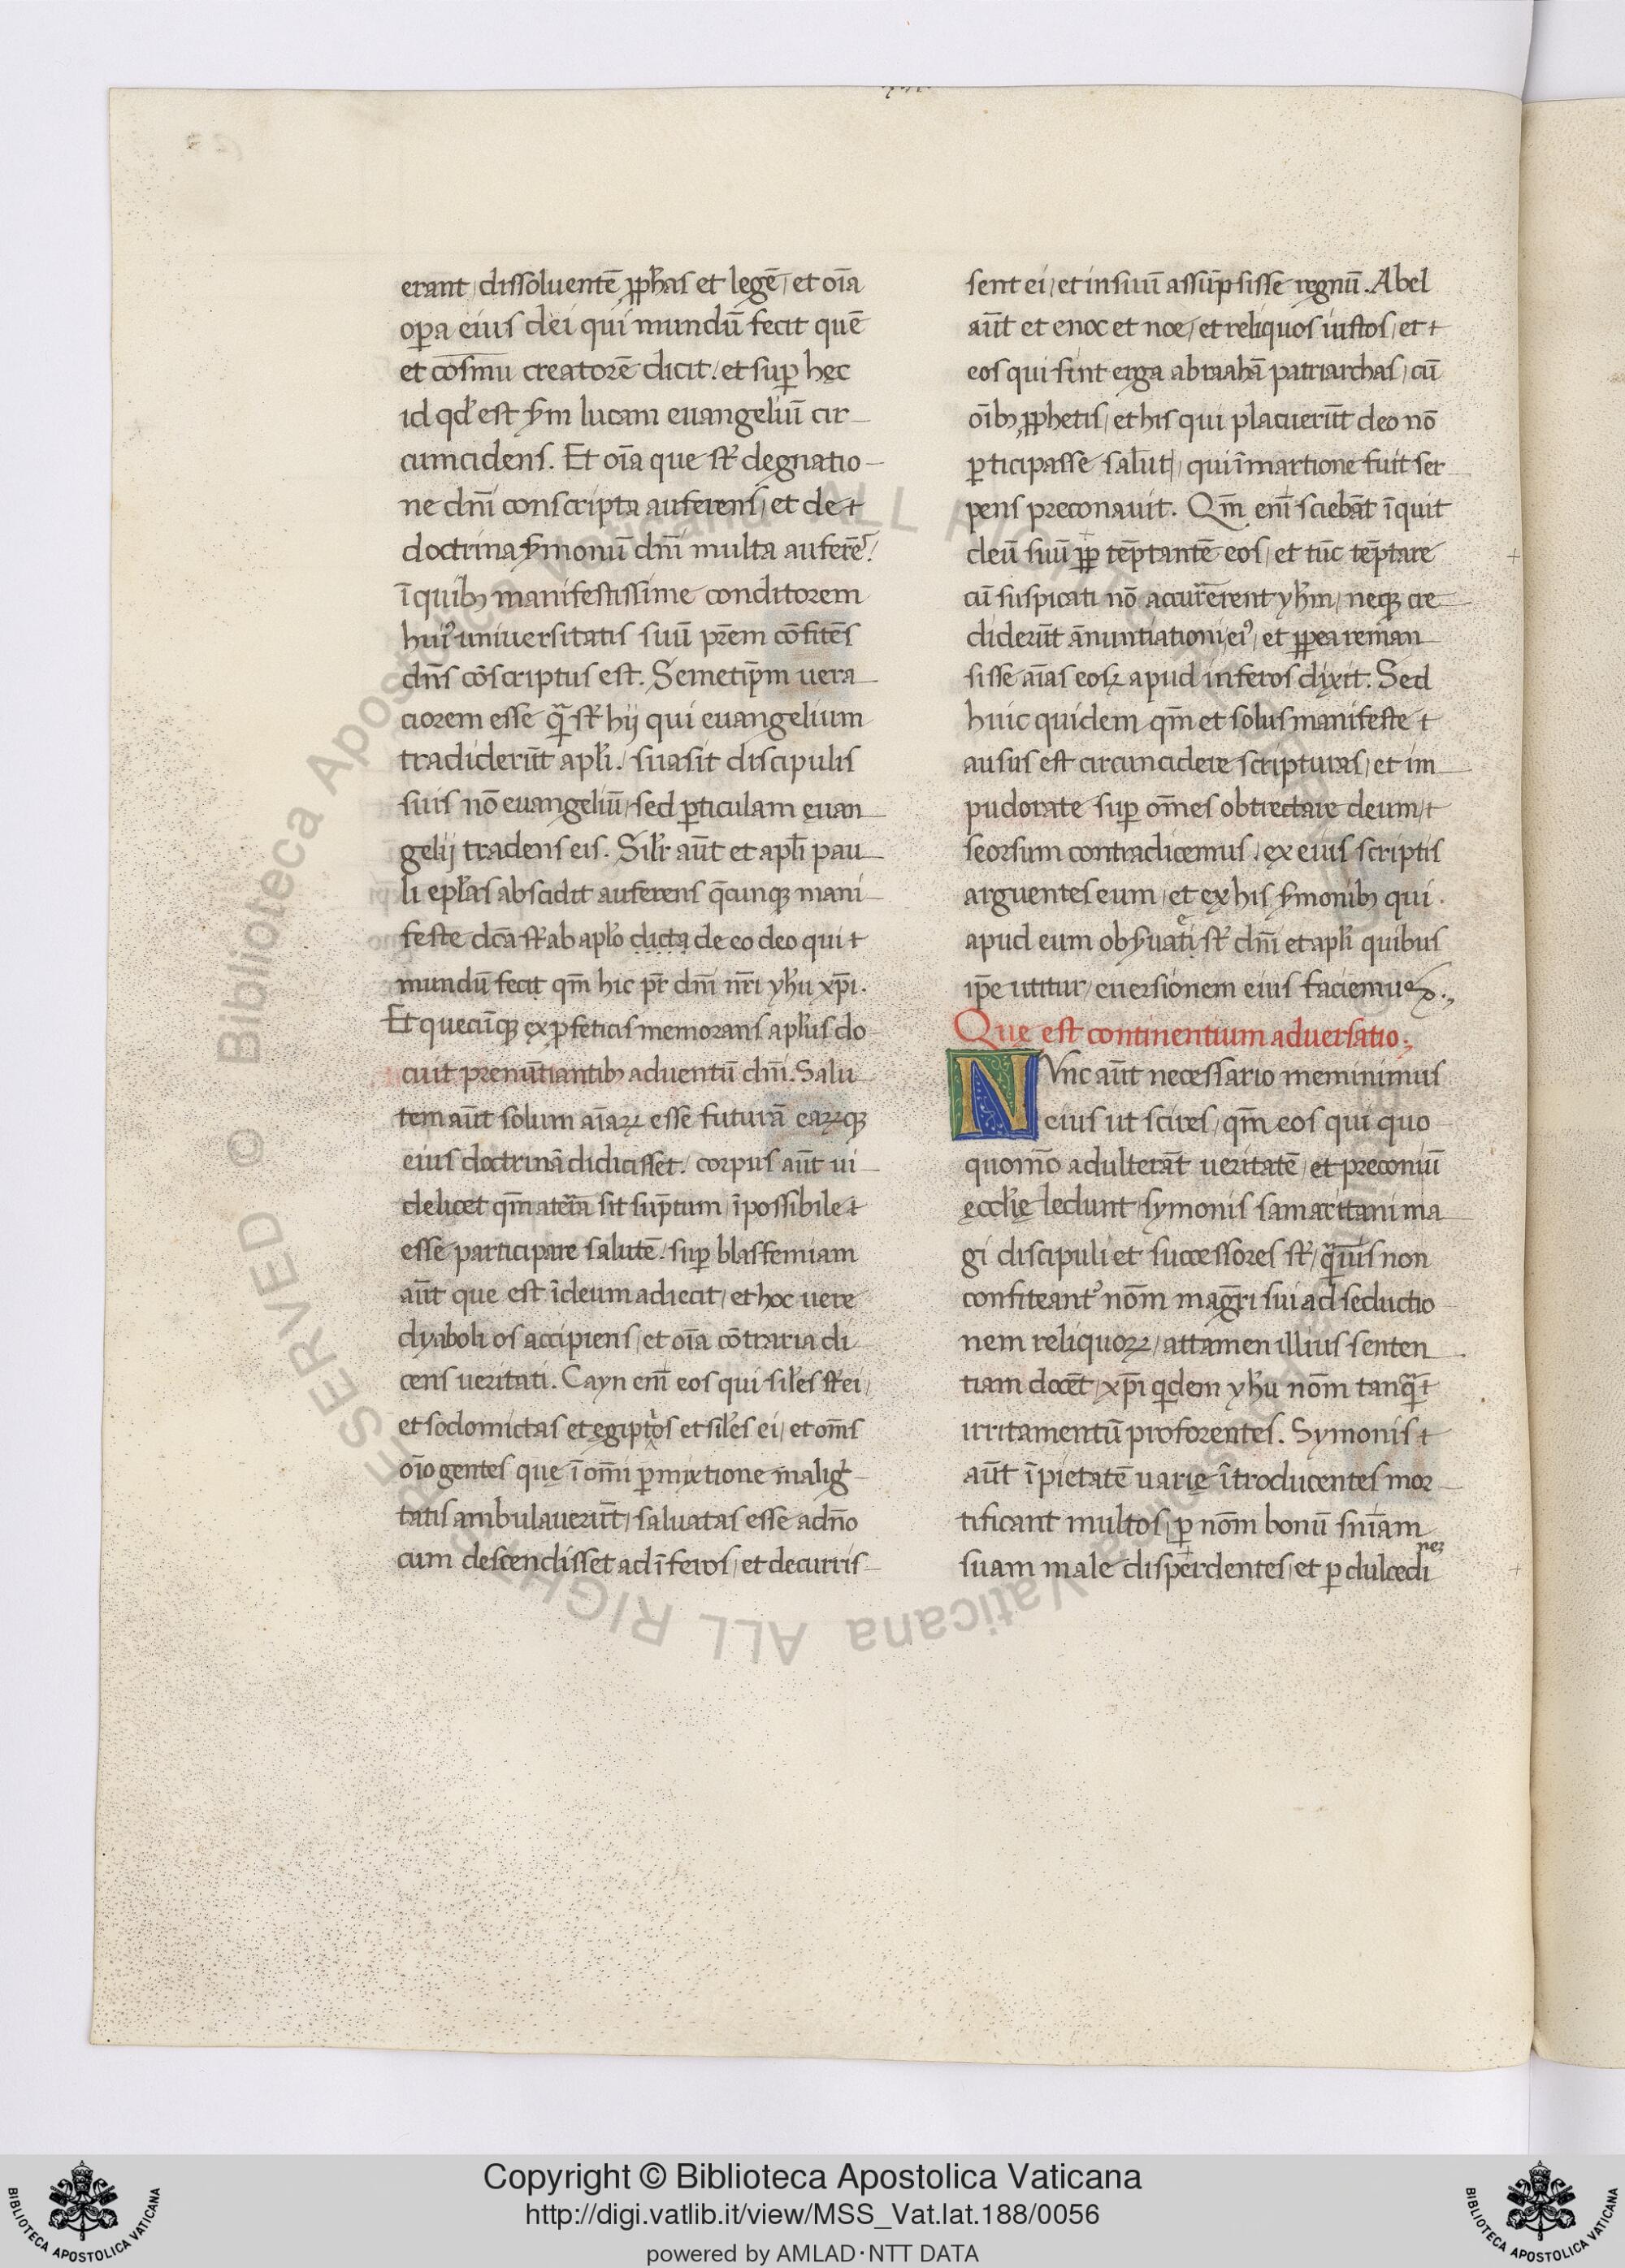 erant, dissoluentē ꝓph̄as et legē, et oīa
oꝑa eius dei qui mundū fecit quē
et cosmu creatorē dicit. et suꝑ hęc
id qd̓ est ẜm lucam euangeliū cir
cumcidens. Et oīa que st̄ degnatio
ne dn̄i conscripta auferens, et de
doctrina ẜmonū dn̄i multa auferēs.
ī quibꝫ manifestissime conditorem
huiꝰ uniuersitatis suū pr̄em cōfitēs
dn̄s cōscriptus est. Semetip̄m uera
ciorem esse q̄ st̄ hij qui euangelium
tradiderūt apl̄i. suasit discipulis
suis nō euangeliū, sed ꝑticulam euan
gelij tradens eis. Sil̄r aūt et apl̄i pau
li epl̄as abscidit auferens q̄cunqꝫ mani
feste dc̄a st̄ ab apl̄o dicta de eo deo qui
mundū fecit qm̄ hic pr̄ dn̄i nr̄i yh̄u xp̄i.
Et quecūqꝫ ex ꝓfeticis memorans apl̄us do
cuit prenūtiantibꝫ aduentū dn̄i. Salu
tem aūt solum aīaꝝ esse futurā eaꝝqꝫ
eius doctrinā didicisset. corpus aūt ui
delicet qm̄ a tēra sit sūptum, īpossibile
esse participare salutē. suꝑ blasfemiam
aūt que est ī deum adiecit, et hoc uere
dyaboli os accipiens, et oīa cōtraria di
cens ueritati. Cayn em̄ eos qui sil̄es st̄ ei,
et sodomitas et egiptios et sil̄es ei, et om̄s
oīo gentes que ī om̄i ꝑmixtione malig
tatis ambulauerūt, saluatas esse a dn̄o
cum descendisset ad īferos, et decurris
sent ei, et in suū assūpsisse regnū. Abel
aūt et enoc et noe, et reliquos iustos, et
eos qui sint erga abraahā patriarchas, cū
oībꝫ ꝓphetis, et his qui placuerūt deo nō
ꝑticipasse salut, qui ī martione fuit ser
pens preconauit. Qm̄ eni sciebāt īquit
deū suū ꝑꝑ tēptantē eos, et tūc tēptare
cū suspicati nō accurrerent yh̄m, neqꝫ cre
diderūt ānuntiationi eiꝰ, et ꝓpea reman
sisse aīas eoꝝ apud inferos dixit. Sed
huic quidem qm̄ et solus manifeste
ausus est circuncidere scripturas, et im
pudorate suꝑ om̄es obtrectare deum,
seorsum contradicemus. ex eius scriptis
arguentes eum, et ex his ẜmonibꝫ qui
apud eum obẜuati st̄ dn̄i et apl̄i quibus
ip̄e utitur, euersionem eius faciemus.
Que est continentium aduersatio;
NVnc aūt necessario meminimus
eius ut scires, qm̄ eos qui quo
quomō adulterāt ueritatē, et preconiū
ęccl̄ię ledunt, symonis samaritani ma
gi discipuli et successores st̄, q̄uis non
confiteant᷑ nōm magr̄i sui ad seductio
nem reliquoꝝ, attamen illius senten
tiam docēt, xp̄i qdem yh̄u nōm tanq̄
irritamentū proforentes. Symonis
aūt īpietatē uarię ītroducentes mor
tificant multos, ꝑ nōm bonū sn̄iam
suam male disperdentes, et ꝑ dulcedi
neꝫ
Copyright © Biblioteca Apostolica Vaticana
http://digi.vatlib.it/view/MSS_Vat.lat.188/0056
powered by AMLAD·NTT DATA
BIBLIOTECA APOSTOLICA VATICANA
BIBLIOTECA APOSTOLICA VATICANA